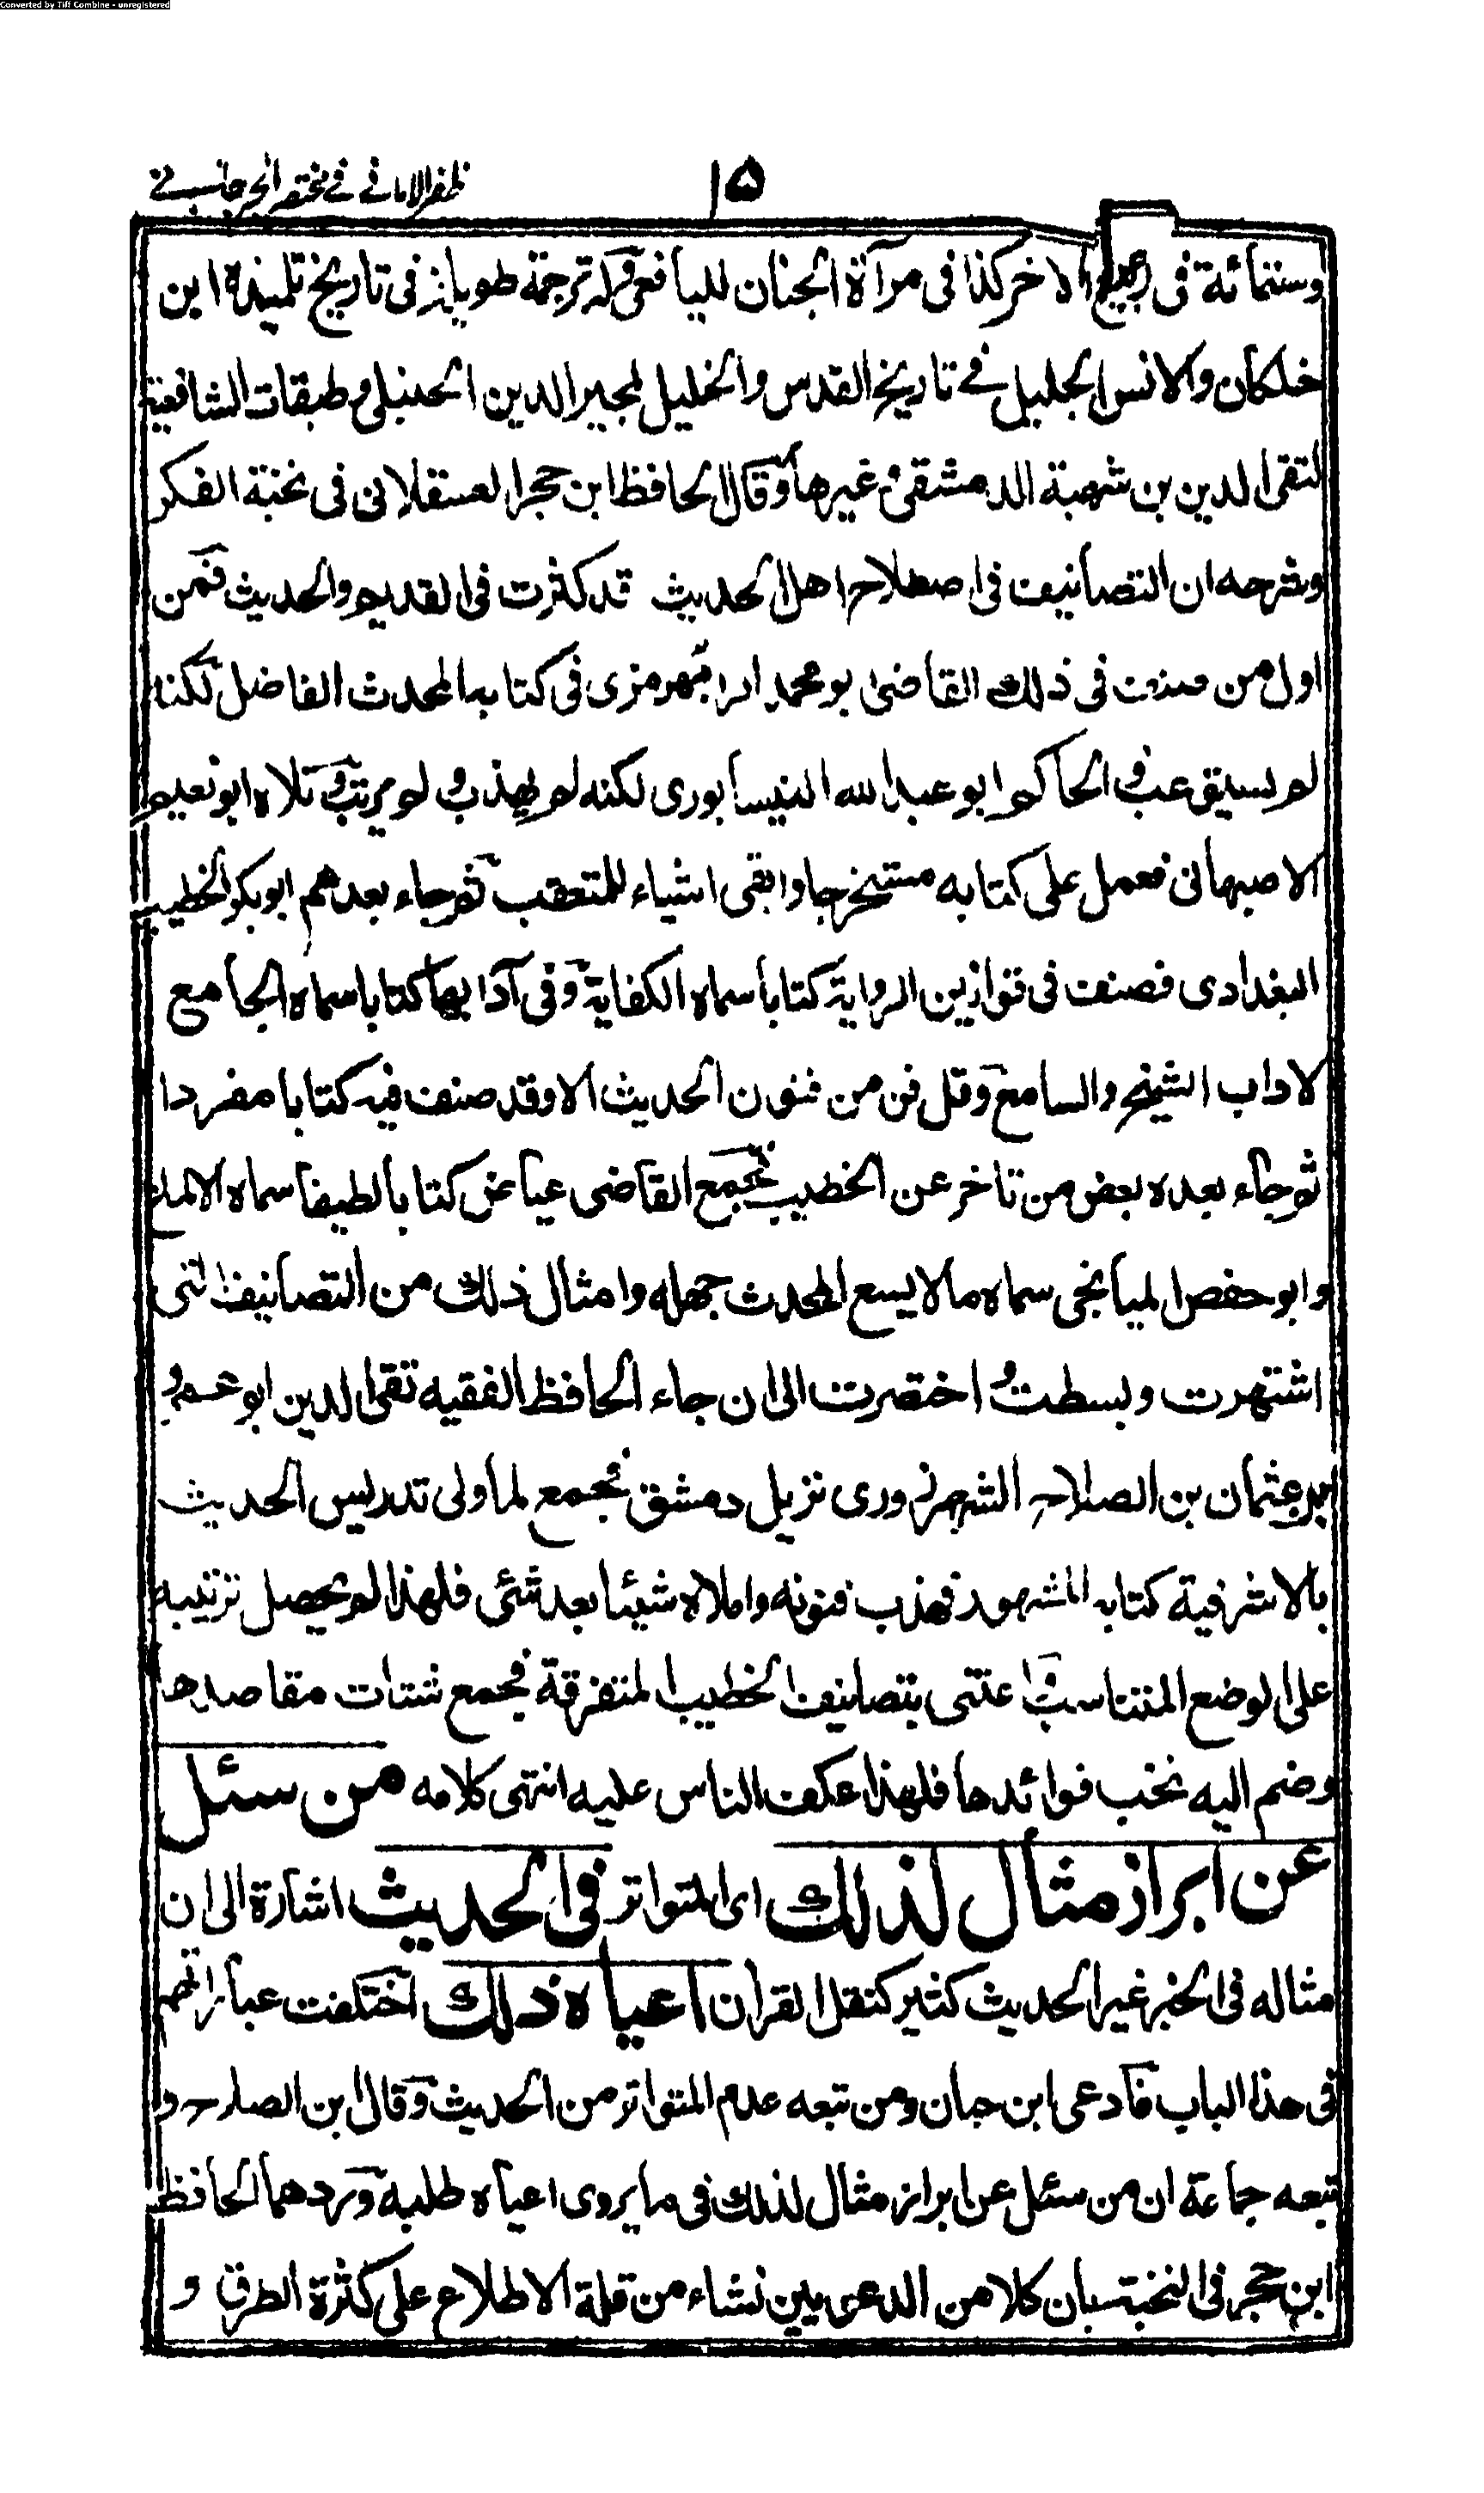 Converted by Tiff Combine - unregistered
ظفر الامانى فى مختصر الجرجانى
١٥
وستمائة فى ربيع الاخر كذا فى مرآة الجنان لليافعى وله ترجمة طويلة فى تاريخ تلميذه ابن
خلكان والانس الجليل فى تاريخ القدس والخليل لمجير الدين الحنبلى وطبقات الشافعية
لتقى الدين بن شهبة الدمشقى وغيرها وقال الحافظ ابن حجر العسقلانى فى نخبة الفكر
وشرحه ان التصانيف فى اصطلاح اهل الحديث قد كثرت فى القديم والحديث فمن
اول من صنف فى ذلك القاضى ابو محمد الرامهرمزى فى كتابه المحدث الفاضل لكنه
لم يستوعب والحاكم ابو عبد الله النيسابورى لكنه لم يهذب ولم يرتب وتلاه ابو نعيم
الاصبهانى فعمل على كتابه مستخرجا وابقى اشياء للمتعقب ثم جاء بعدهم ابو بكر الخطيب
البغدادى فصنف فى قوانين الرواية كتابا سماه الكفاية وفى آدابها كتابا سماه الجامع
لاداب الشيخ والسامع وقل فن من فنون الحديث الا وقد صنف فيه كتابا مفردا
ثم جاء بعده بعض من تاخر عن الخطيب فجمع القاضى عياض كتابا لطيفا سماه الالماع
وابو حفص الميانجى سماه ما لا يسع المحدث جهله وامثال ذلك من التصانيف التى
اشتهرت وبسطت و اختصرت الى ان جاء الحافظ الفقيه تقى الدين ابو عمرو
عثمان بن الصلاح الشهرزورى نزيل دمشق فجمع لما ولى تدريس الحديث
بالاشرفية كتابه المشهور فهذب فنونه واملاه شيئا بعد شئى فلهذا لم يحصل ترتيبه
على الوضع المتناسب واعتنى بتصانيف الخطيب المتفرقة فجمع شتات مقاصدها
وضم اليه نخب فوائدها فلهذا عكف الناس عليه انتهى كلامه من سئل
عن ابراز مثال لذلك اى المتواتر فى الحديث اشارة الى ان
مثاله فى الخبر غير الحديث كثير كنقل القران اعياه ذلك اختلفت عباراتهم
فى هذا الباب فادعى ابن حبان ومن تبعه عدم المتواتر من الحديث وقال ابن الصلاح و
تبعه جماعة ان من سئل عن ابراز مثال لذلك فى ما يروى اعياه طلبه وردهما الحافظ
ابن حجر فى النخبة بان كلا من الدعويين نشاء من قلة الاطلاع على كثرة الطرق و